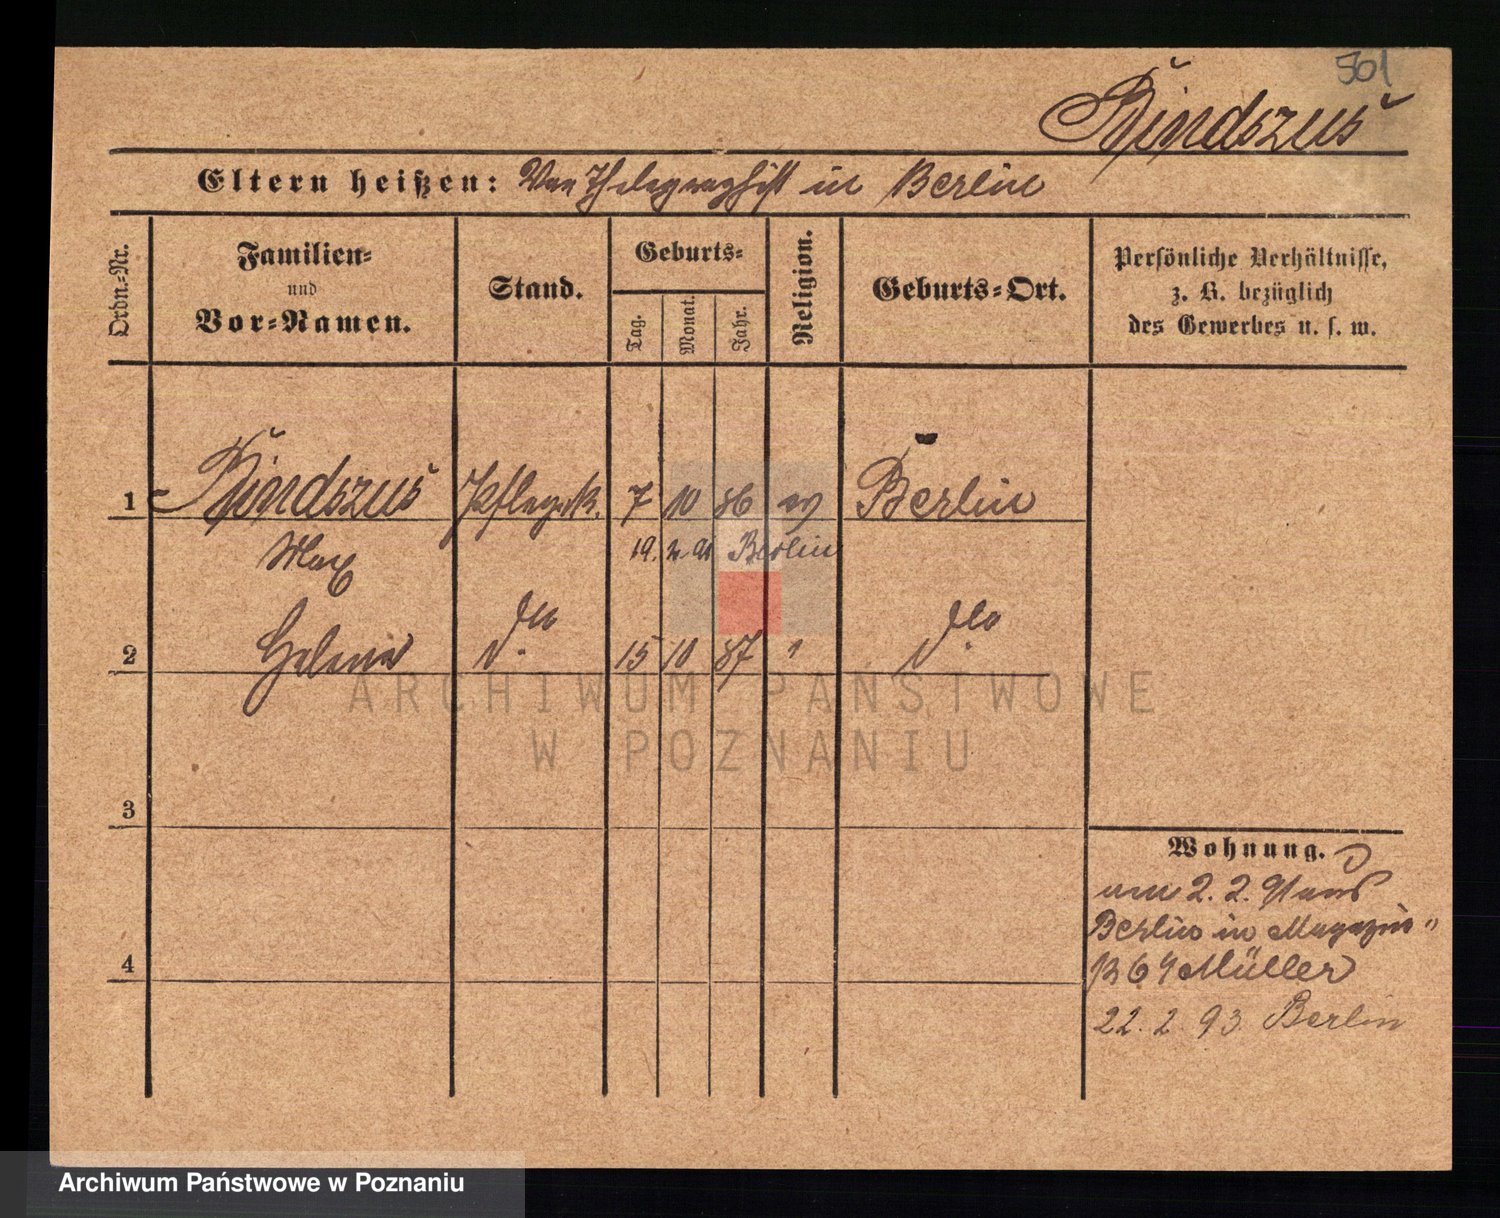 501
Kindszus
Eltern heißen: Telegraphist in Berlin
Ordn.-Nr.
Familien-
und
Vor-Namen.
Stand.
Geburts-
Tag.
Monat.
Jahr.
Religion.
Geburts-Ort.
Persönliche Verhältnisse,
z. B. bezüglich
des Gewerbes u. s. w.
1 Kindszus 7 10 86 Berlin
Max 19. 2. 91 Berlin
2 Helene dto 15 10 87 " dto
3
4
Wohnung.
am 2. 2. 91 aus
Berlin in Magazin-
Müller
22. 2. 93. Berlin
ARCHIWUM PAŃSTWOWE
W POZNANIU
Archiwum Państwowe w Poznaniu